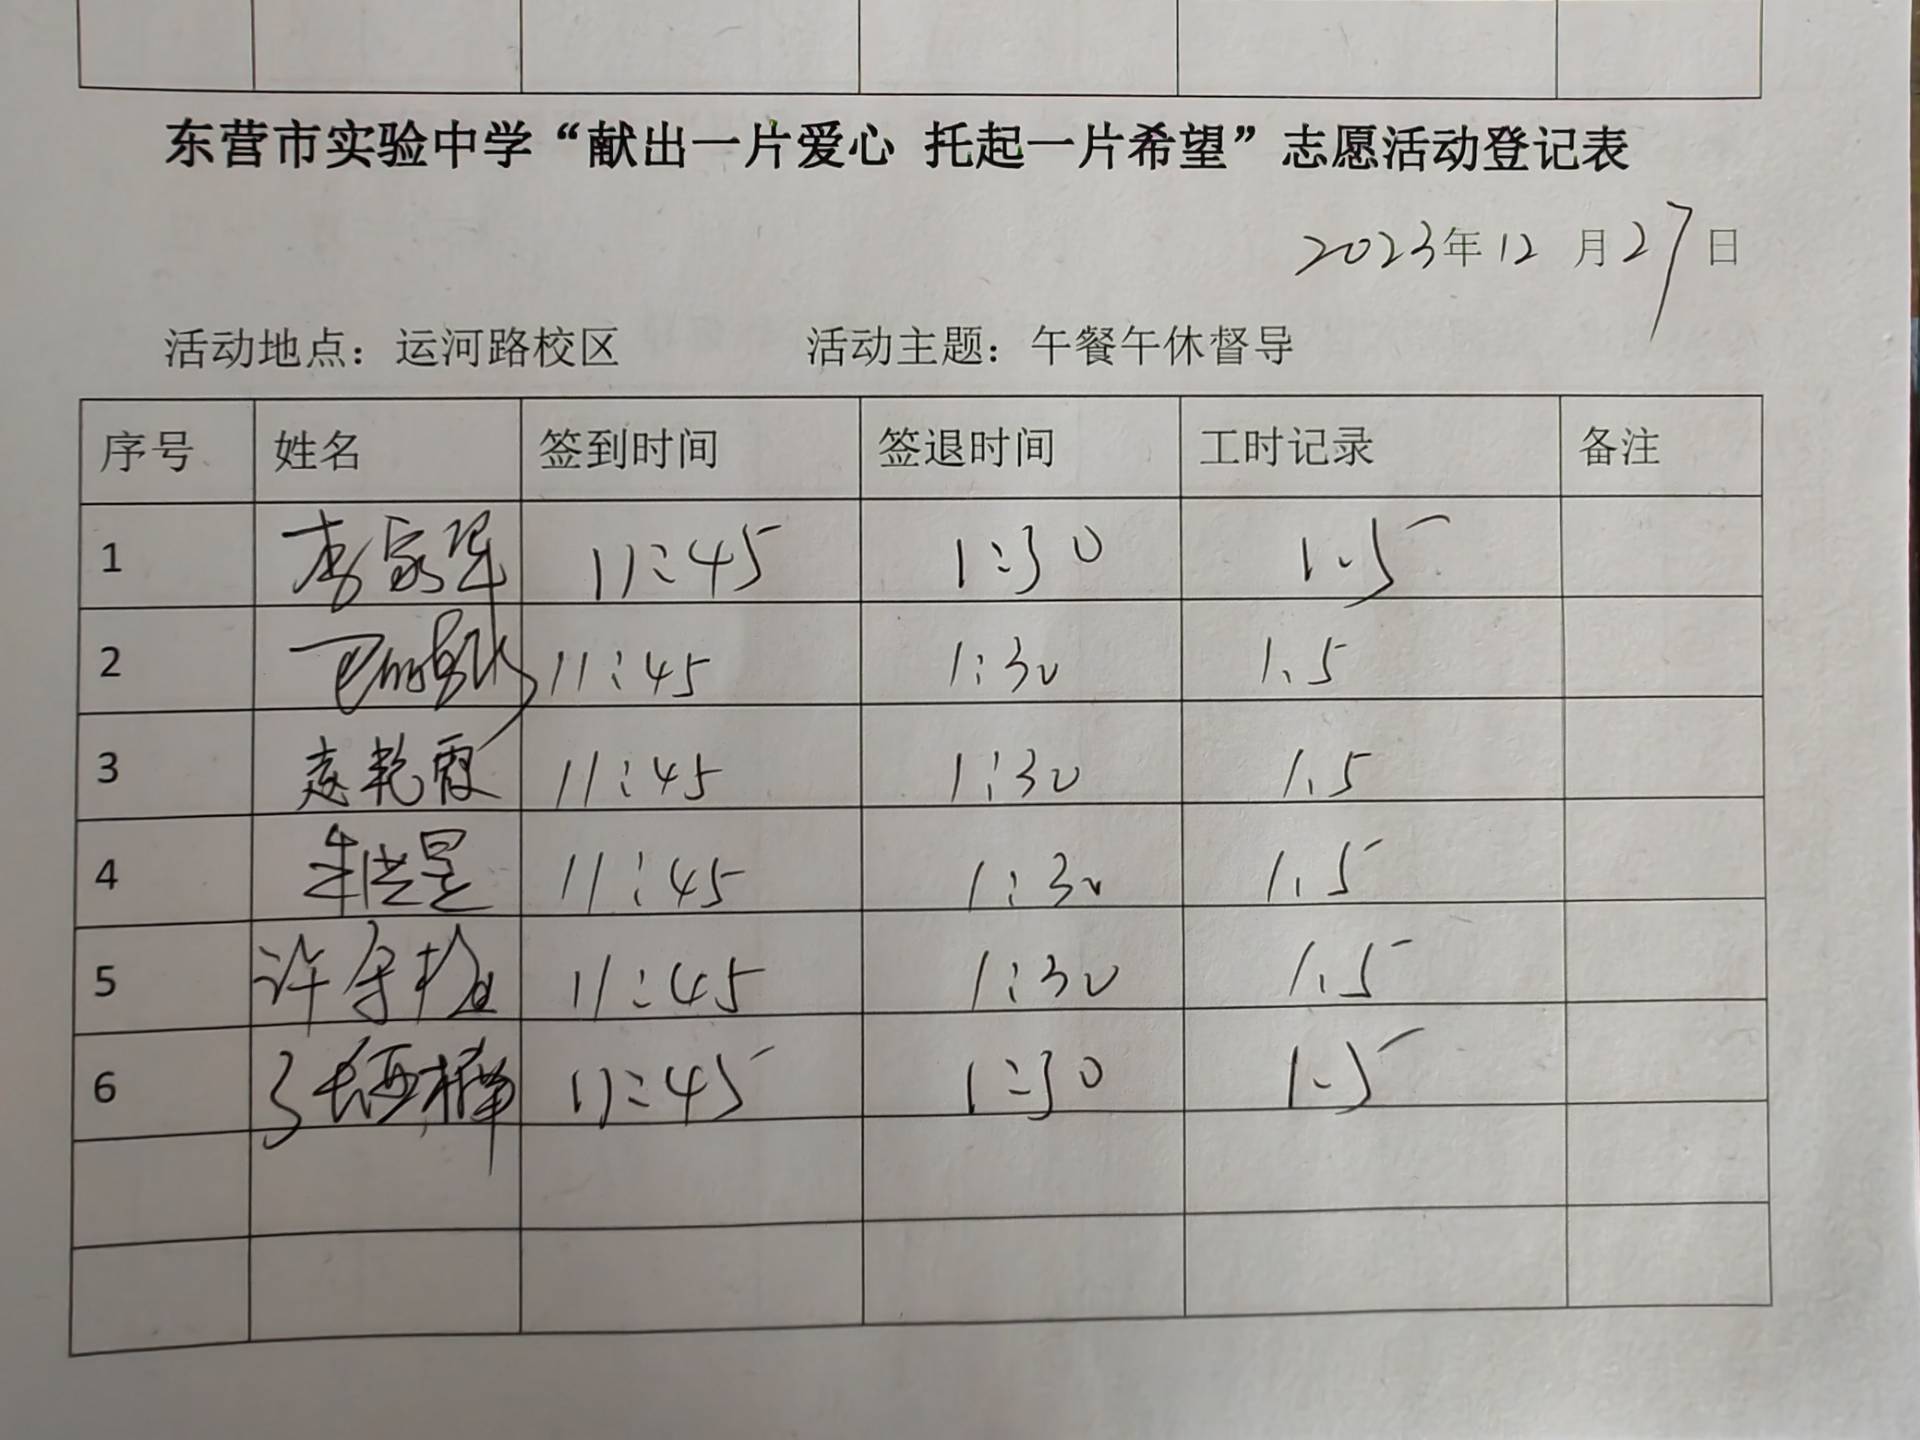 东营市实验中学“献出一片爱心 托起一片希望”志愿活动登记表
2023年12月27日
活动地点：运河路校区 活动主题：午餐午休督导
序号 姓名 签到时间 签退时间 工时记录 备注
1 李家军 11:45 1:30 1.5
2 11:45 1:30 1.5
3 袁艳霞 11:45 1:30 1.5
4 11:45 1:30 1.5
5 许 11:45 1:30 1.5
6 11:45 1:30 1.5